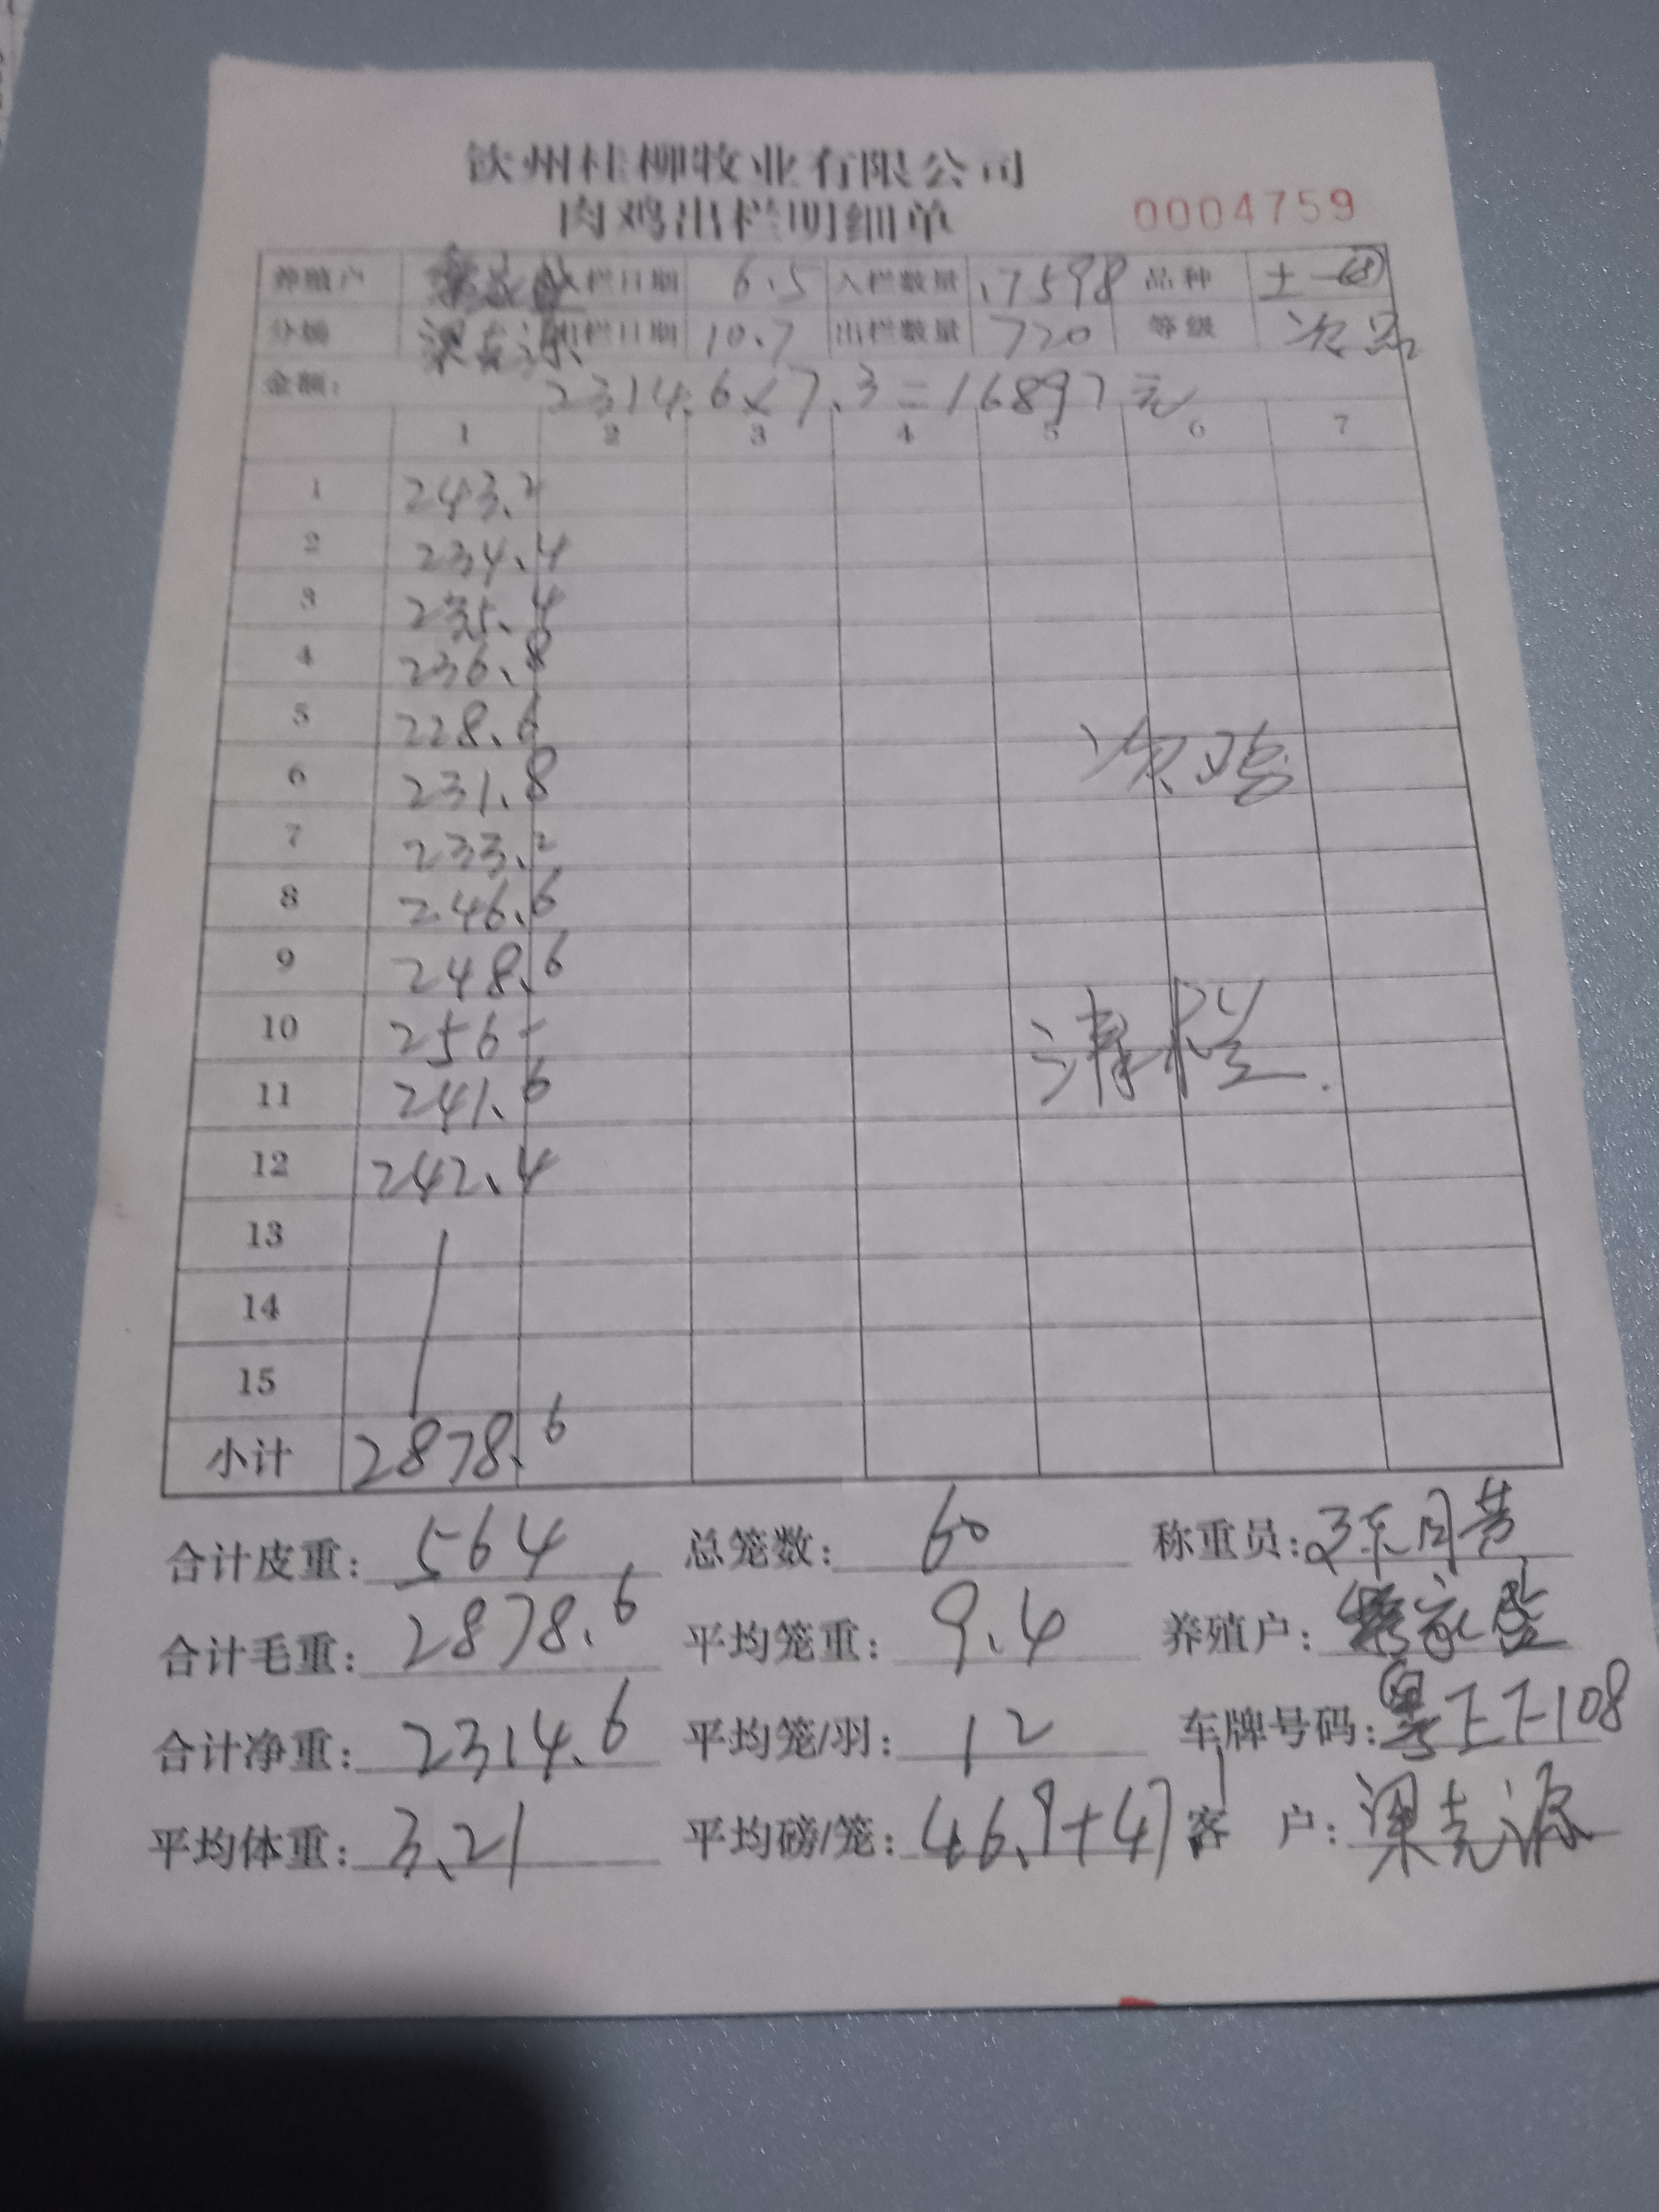 钦州桂柳牧业有限公司
肉鸡出栏明细单 0004759
养殖户 入栏日期 6.5 入栏数量 .7598 品种 土一
分场 梁克源 出栏日期 10.7 出栏数量 720 等级 次品
金额: 2314.6×7.3=16897元
1 2 3 4 5 6 7
1 243.2
2 234.4
3 235.4
4 236.8
5 228.6
6 231.8
次鸡
7 233.2
8 246.6
9 248.6
10 256-
清栏.
11 241.6
12 242.4
13
14
15
小计 2878.6
合计皮重: 564 总笼数: 60 称重员:
合计毛重: 2878.6 平均笼重: 9.4 养殖户:
合计净重: 2314.6 平均笼/羽: 12 车牌号码: 粤
平均体重: 3.21 平均磅/笼: 46.9+47 客 户: 梁克源